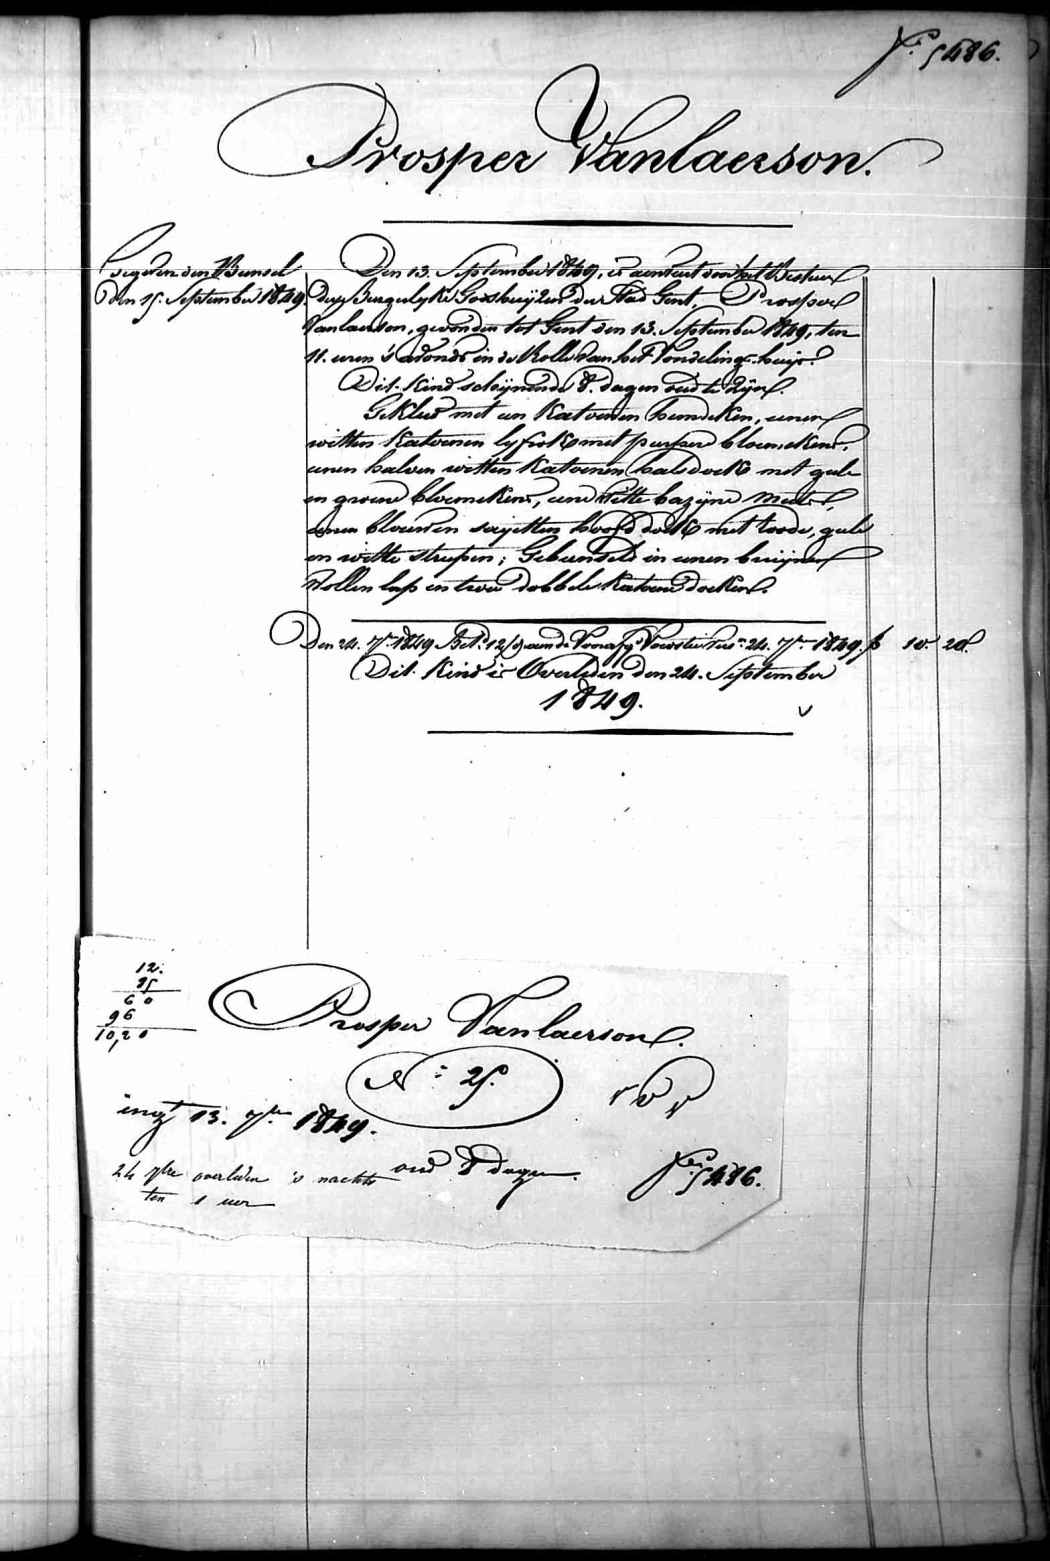 f.º 5486.
Prosper Vanlaerson.
den 15. September 1849.
Den 13. September 1849, is aenveirt door het Bestuer
der Burgerlyke Godshuyzen der Stad Gent, Prosper
Vanlaerson, gevonden tot Gent den 13. September 1849, ten
11. uren 's avonds in de Rolle van het Vondelings-huys.
Dit kind schynende 8. dagen oud te zyn.
Gekleed met een Katoenen hemdeken, eenen
witten Katoenen lyfrok met purpere bloemekens,
eenen halven witten Katoenen halsdoek met geele
en groene bloemekens, eene witte bazyne Muts,
eenen blauwen sayetten hoofddoek met roode, geele
en witte streepen; Gebundeld in eenen bruynen
Wollen lap en twee dobbele Katoene doeken.
Den 24. 7bre 1849 Bet. 12/9 aen de Voorsten 24. 7bre 1849. f 10. 20.
Dit Kind is Overleden den 24. September
1849.
12.
85
60
96
10,20
Prosper Vanlaerson.
Nº 25.
ingt 13. 7bre 1849.
oud 8 dagen.
24 7bre overleden 's nachts
ten 1 uer
fº 5486.